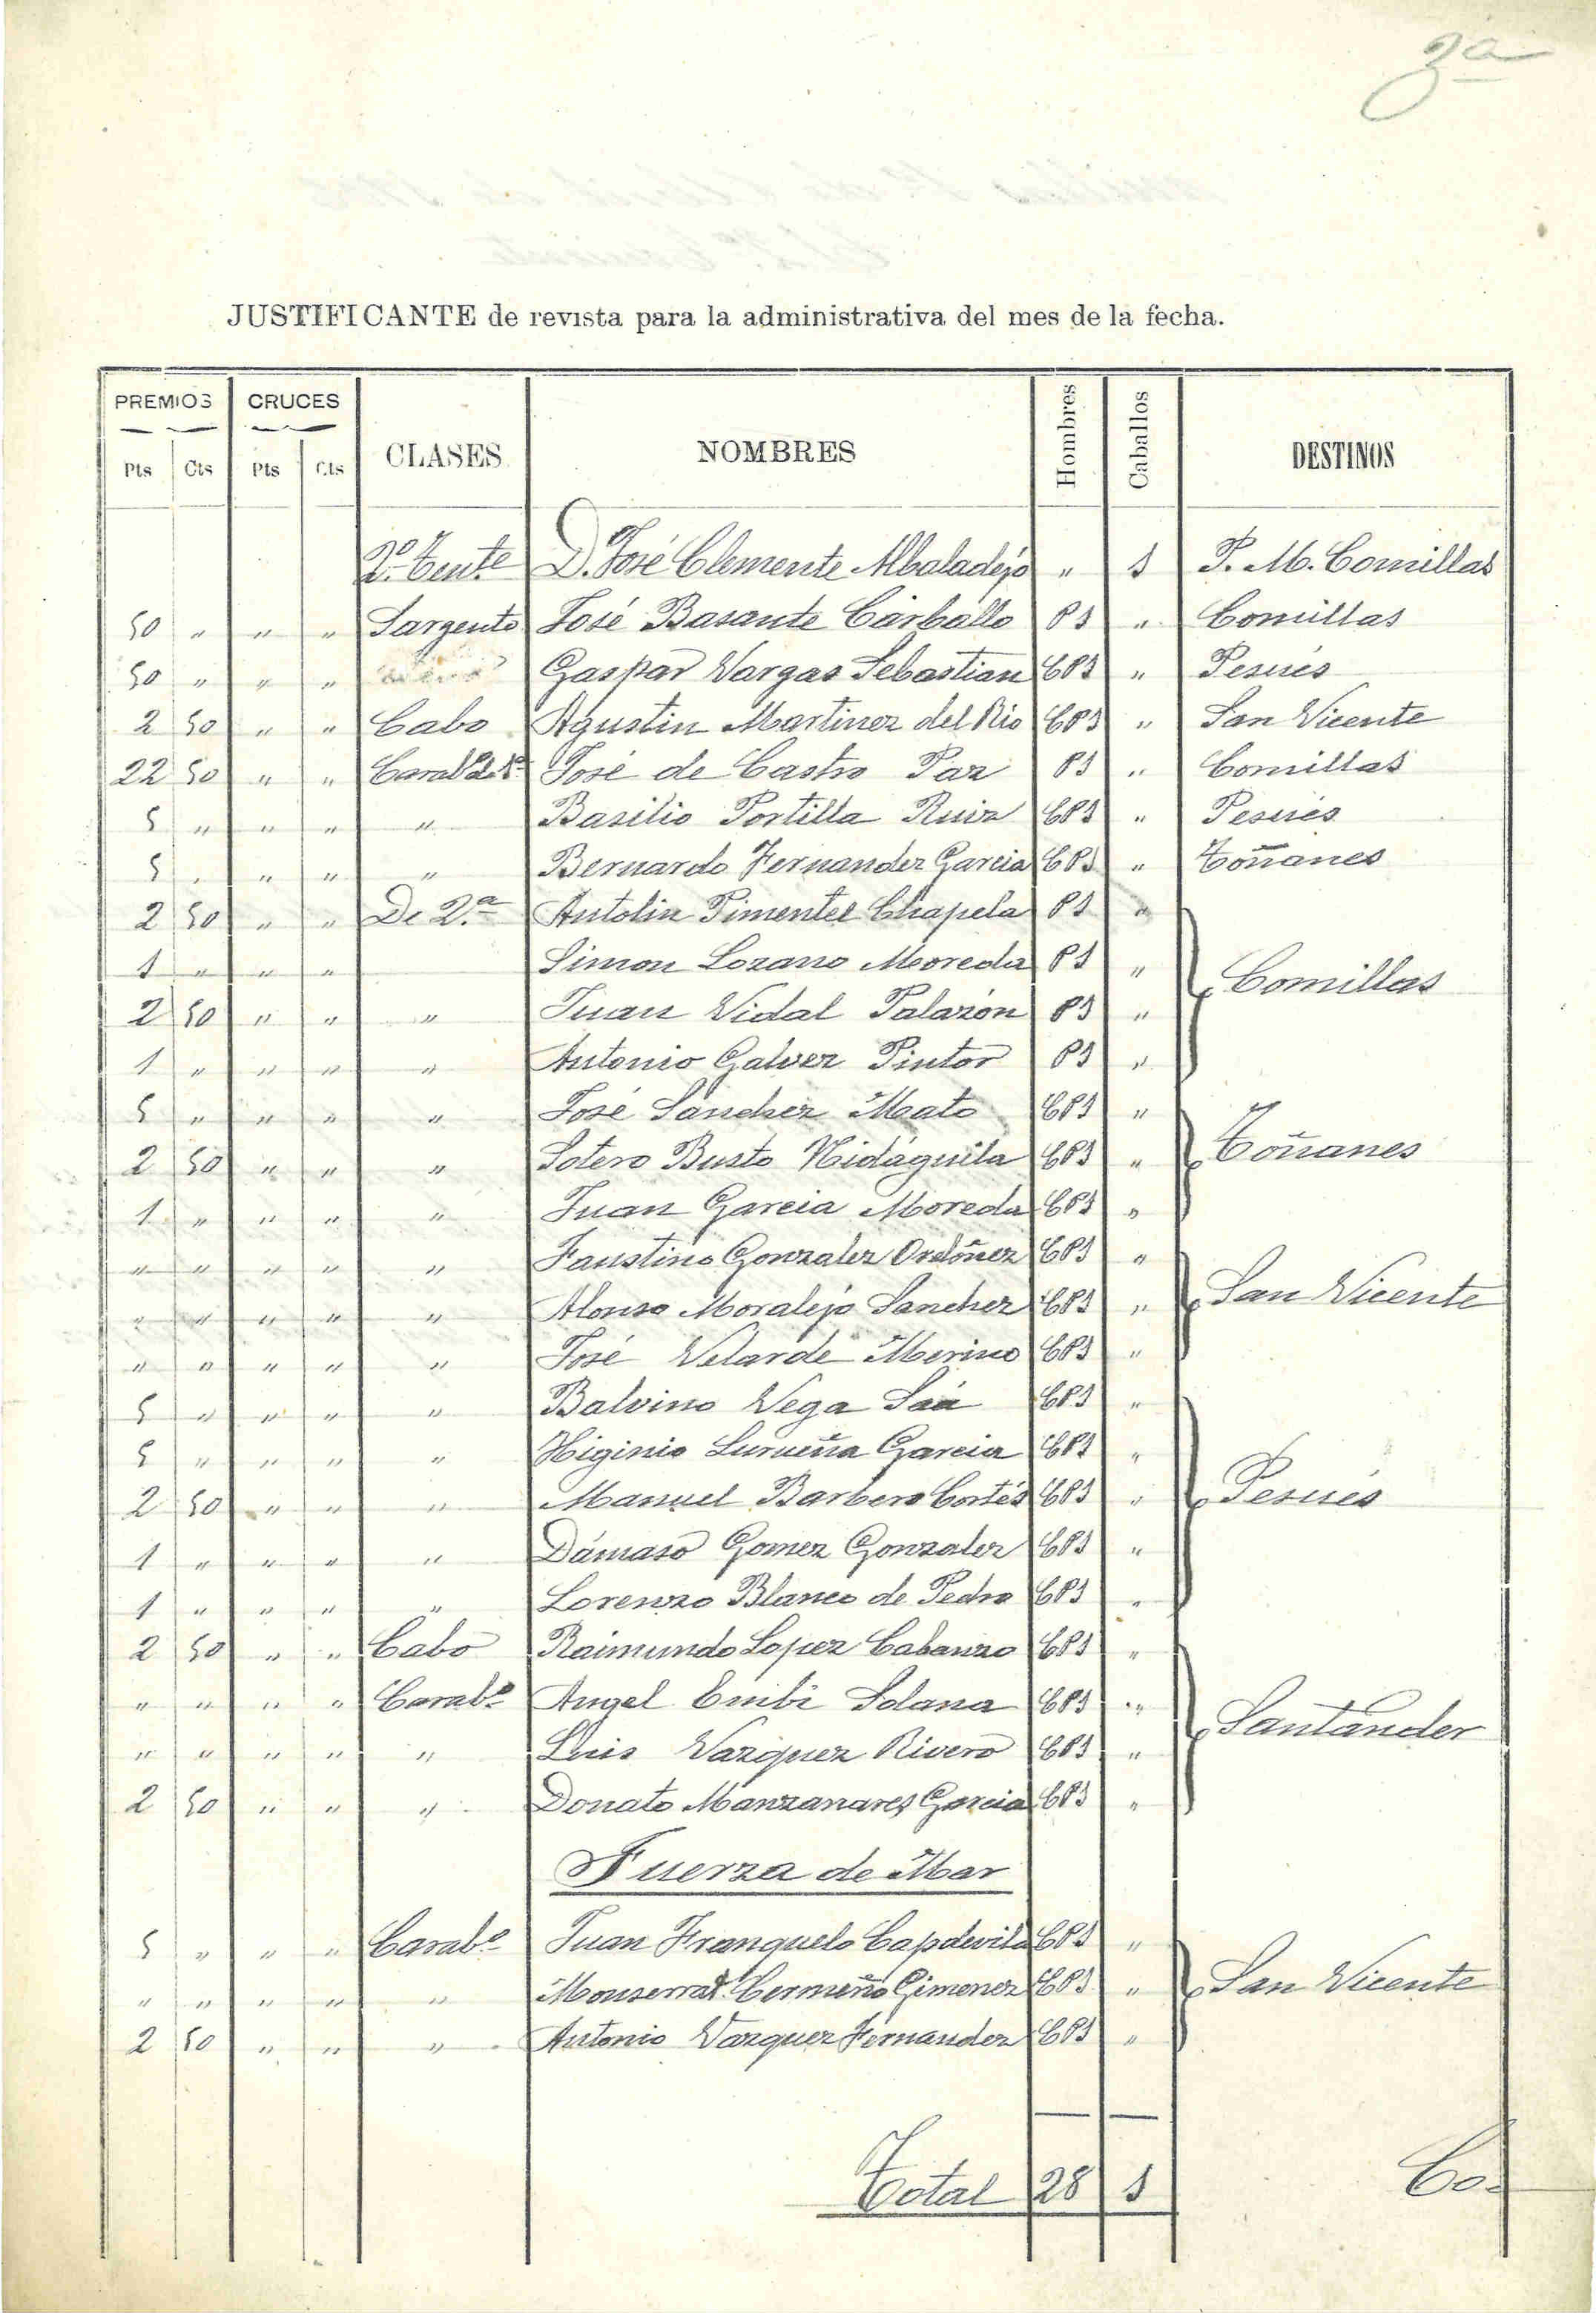 2ª
JUSTIFICANTE de revista para la administrativa del mes de la fecha.
PREMIOS CRUCES CLASES NOMBRES Hombres Caballos DESTINOS
Pts Cts Pts Cts
2º Tente D. José Clemente Albaladejo " 1 P. M. Comillas
50 " " " Sargento José Basante Carballo P1 " Comillas
50 " " " Gaspar Vargas Sebastian CP1 " Pesués
2 50 " " Cabo Agustin Martinez del Rio CP1 " San Vicente
22 50 " " Carabº de 1ª José de Castro Paz P1 " Comillas
5 " " " " Basilio Portilla Ruiz CP1 " Pesués
5 . " " " Bernardo Fernandez Garcia CP1 " Toñanes
2 50 " " De 2.ª Antolin Pimentel Chapela P1 "
1 " " " Simon Lozano Moreda P1 "
Comillas
2 50 " " " Juan Vidal Palazón P1 "
1 " " " " Antonio Galvez Pintor P1 "
5 " " " " José Sanchez Mato CP1 "
2 50 " " " Sotero Busto Hidáguila CP1 " Toñanes
1 " " " " Juan Garcia Moreda CP1 "
" " " " " Faustino Gonzalez Ordóñez CP1 "
" " " " " Alonso Moralejo Sanchez CP1 " San Vicente
" " " " " José Velarde Merino CP1 "
5 " " " " Balvino Vega Saá CP1 "
5 " " " " Higinio Lurueña Garcia CP1 "
2 50 " " " Manuel Barbero Cortés CP1 " Pesués
1 " " " " Dámaso Gomez Gonzalez CP1 "
1 " " " " Lorenzo Blanco de Pedro CP1 "
2 50 " " Cabo Raimundo Lopez Cabanzo CP1 "
" " " " Carabº Angel Embi Solana CP1 "
Santander
" " " " " Luis Vazquez Rivero CP1 "
2 50 " " " Donato Manzanares Garcia CP1 "
Fuerza de Mar
5 " " " Carabº Juan Franquelo Capdevila CP1 "
" " " " " Monserrat Cermeño Gimenez CP1 " San Vicente
2 50 " " " Antonio Vazquez Fernandez CP1 "
Total 28 1 Co=